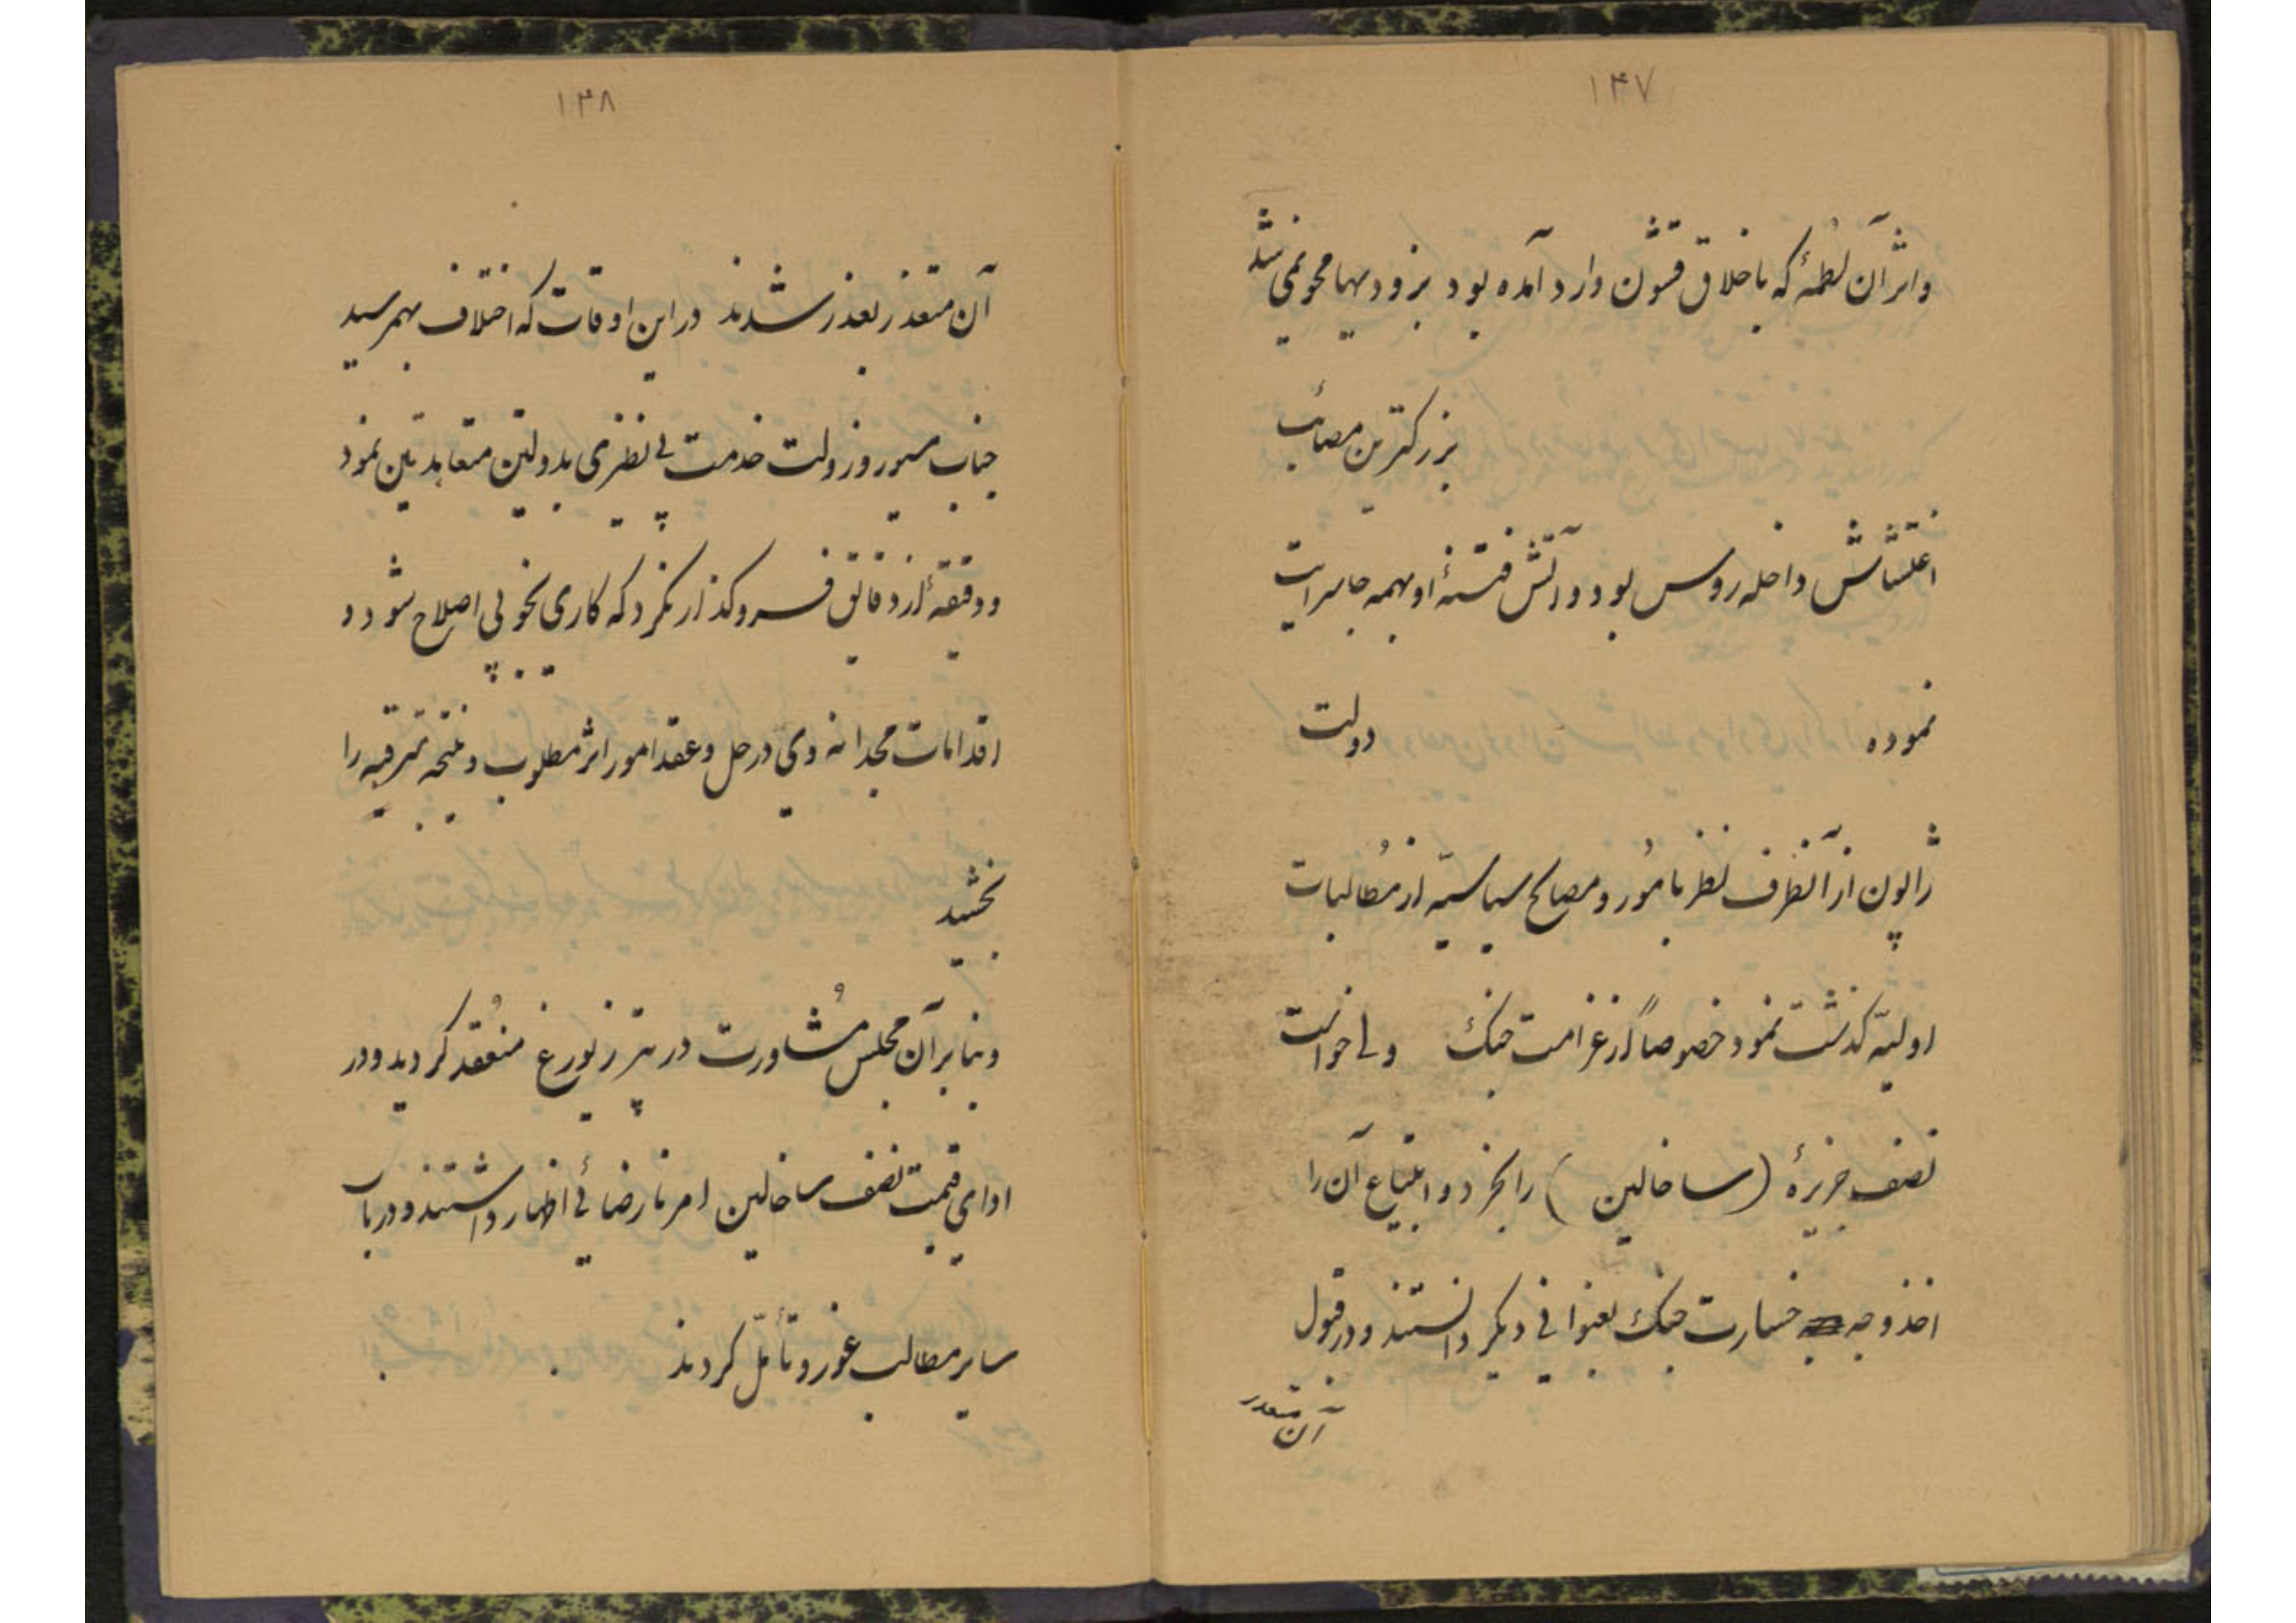 ۱۴۷
واثر آن لطمهٔ که باخلاق قشون وارد آمده بود بزودیها محو نمی شد
بزرگترین مصائب
اغتشاش داخله روس بود و آتش فتنهٔ او بهمه جا سرایت
نموده دولت
ژاپون از آنطرف نظر بامُور و مصالح سیاسیّه از مُطالبات
اولیّه گذشت نمود خصوصاً از غرامت جنگ ولی خواست
نصف جزیرهٔ (ساخالین) را بخرد و ابتیاع آن را
اخذ وجه خسارت جنگ بعنوانی دیگر دانستند و در قبول
آن متعذر
۱۴۸
آن متعذر بعذر شدند در این اوقات که اختلاف بهمرسید
جناب مسیو روزولت خدمت بی نظیری بدولتین متعاهدتین نمود
و دقیقهٔ از دقایق فروگذار نکرد که کاری بخوبی اصلاح شود و
اقدامات مجدانه وی در حل و عقد امور اثر مطلوب و نتیجه مترقبه را
بخشید
و بنابر آن مجلس مُشاورت در پترزبورغ منعُقد گردید و در
ادای قیمت نصف ساخالین امر نارضائی اظهار داشتند و در باب
سایر مطالب غور و تأمّل کردند